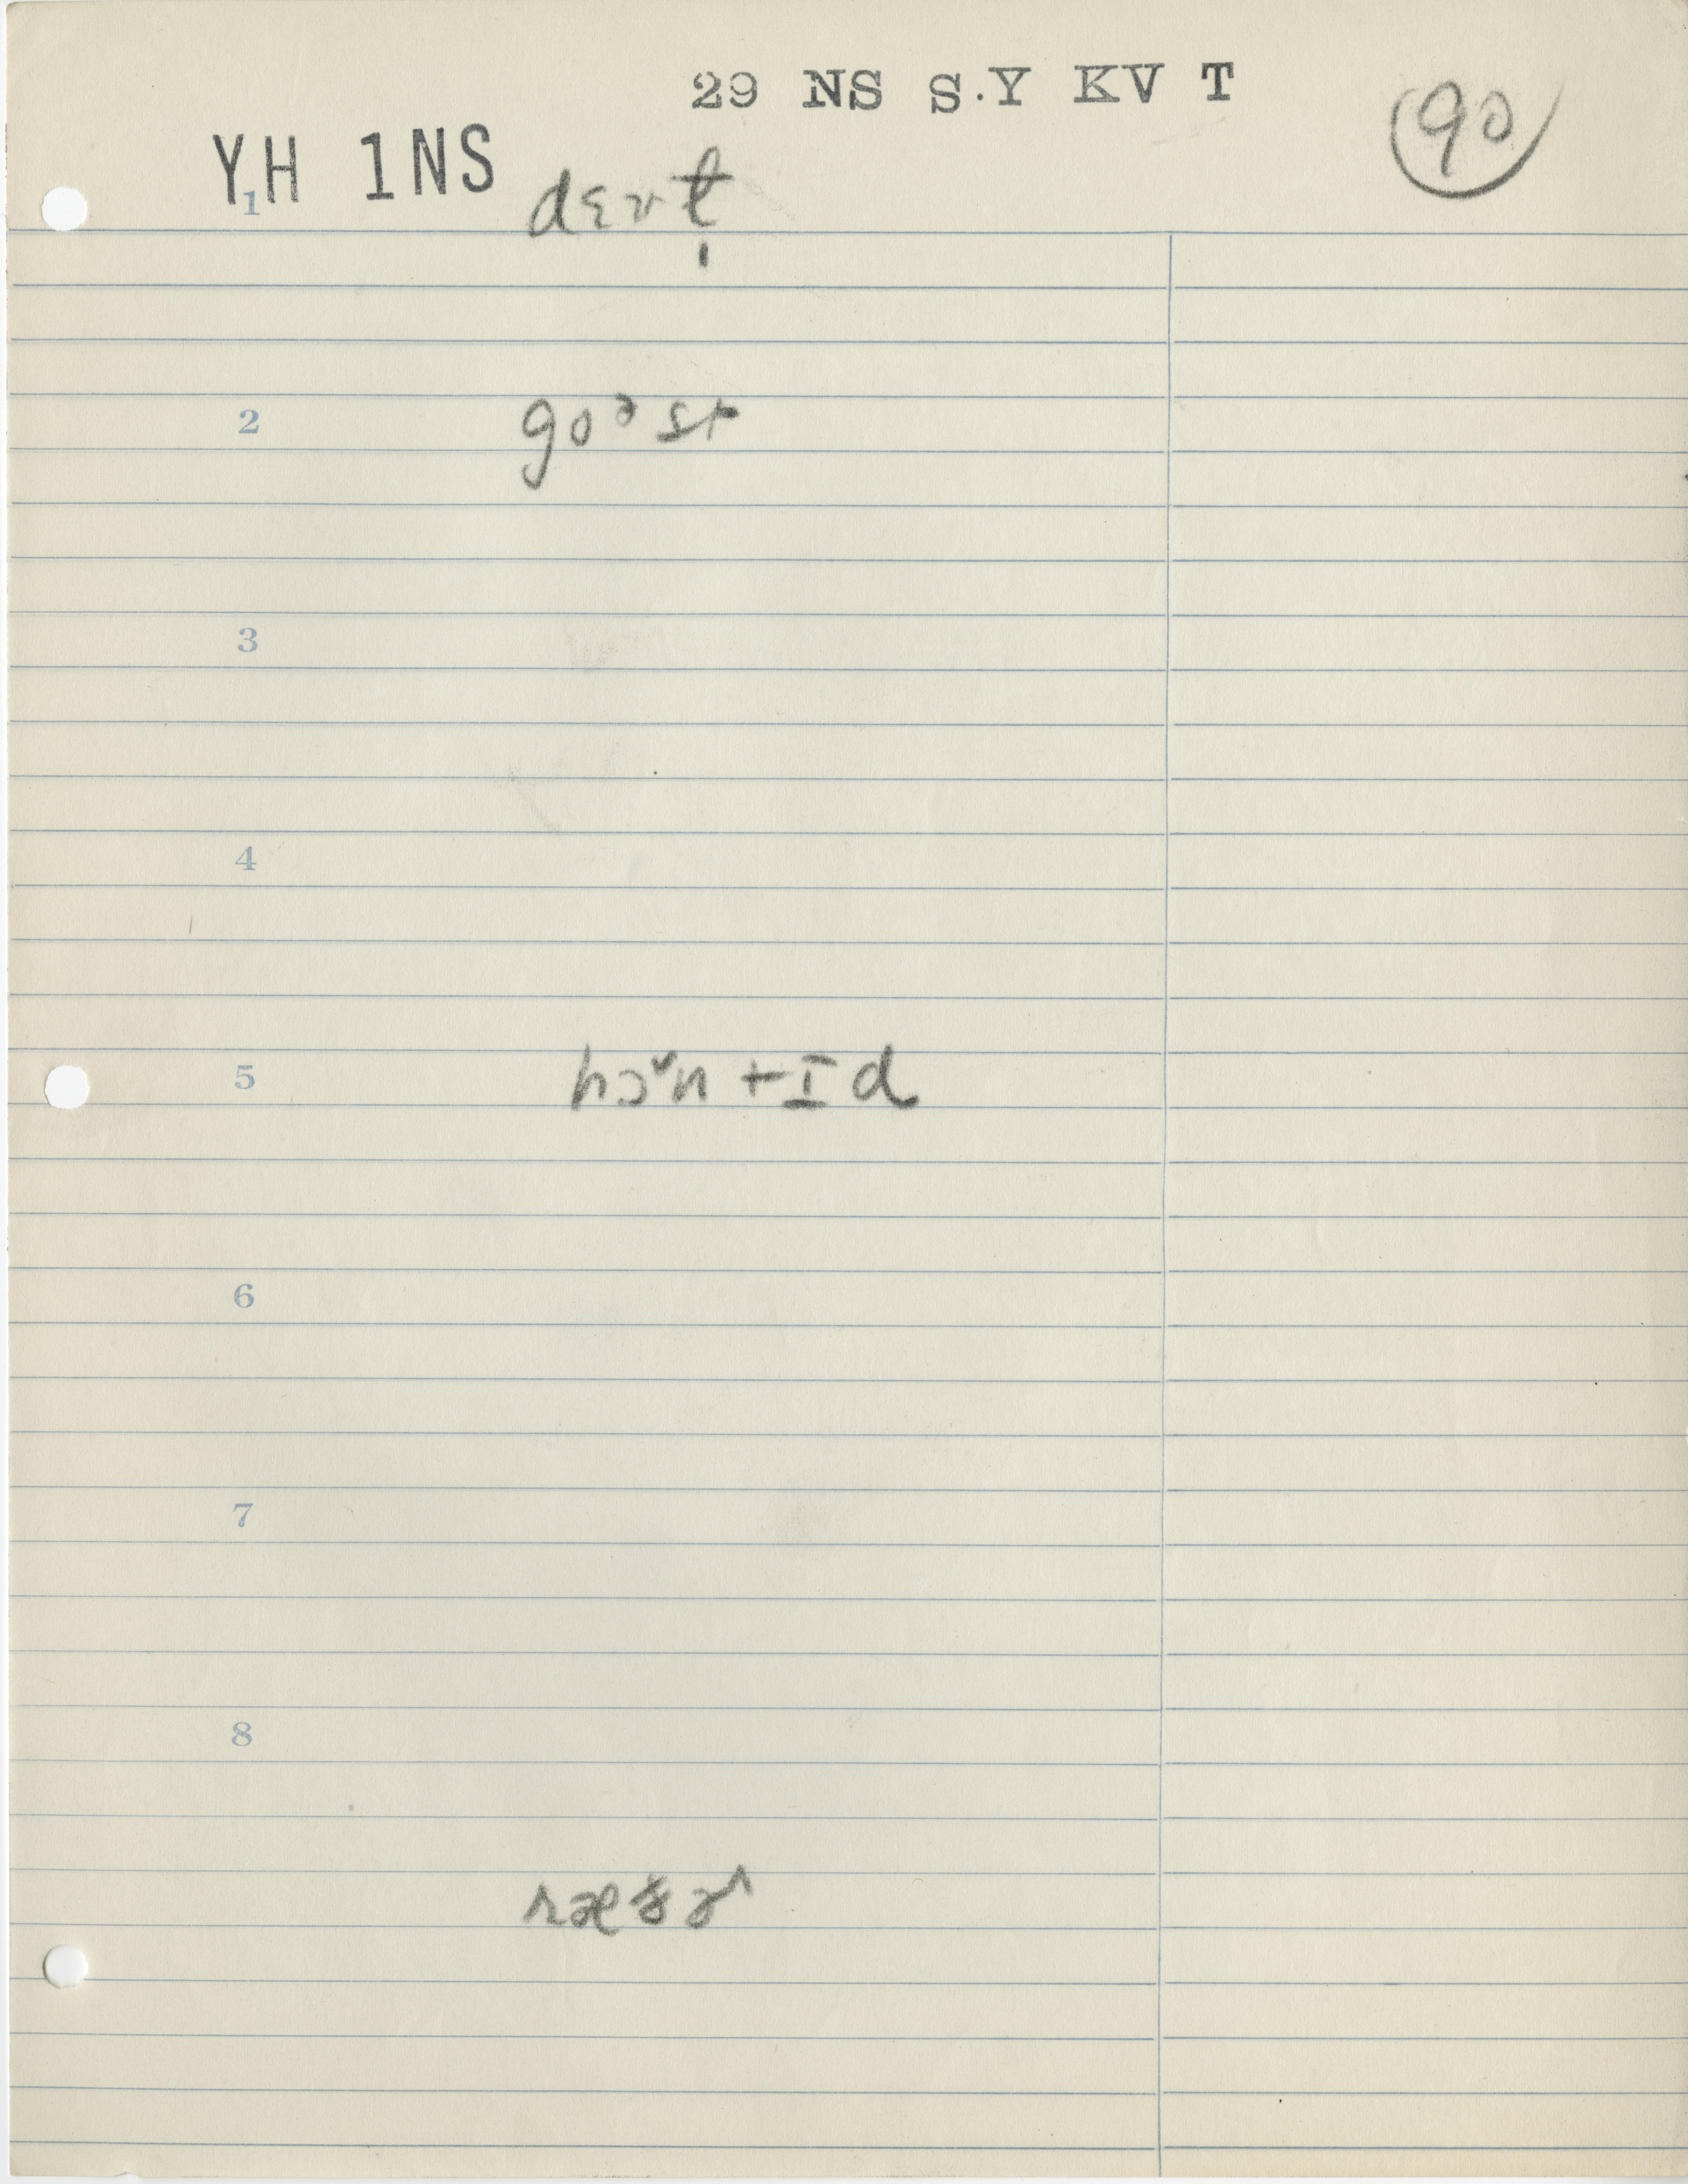 29 NS S.Y KV T
90
YH 1NS
1 dɛvl̩
2 goᵊst
3
4
5 hɔˇntɪd
6
7
8
ræðɚ